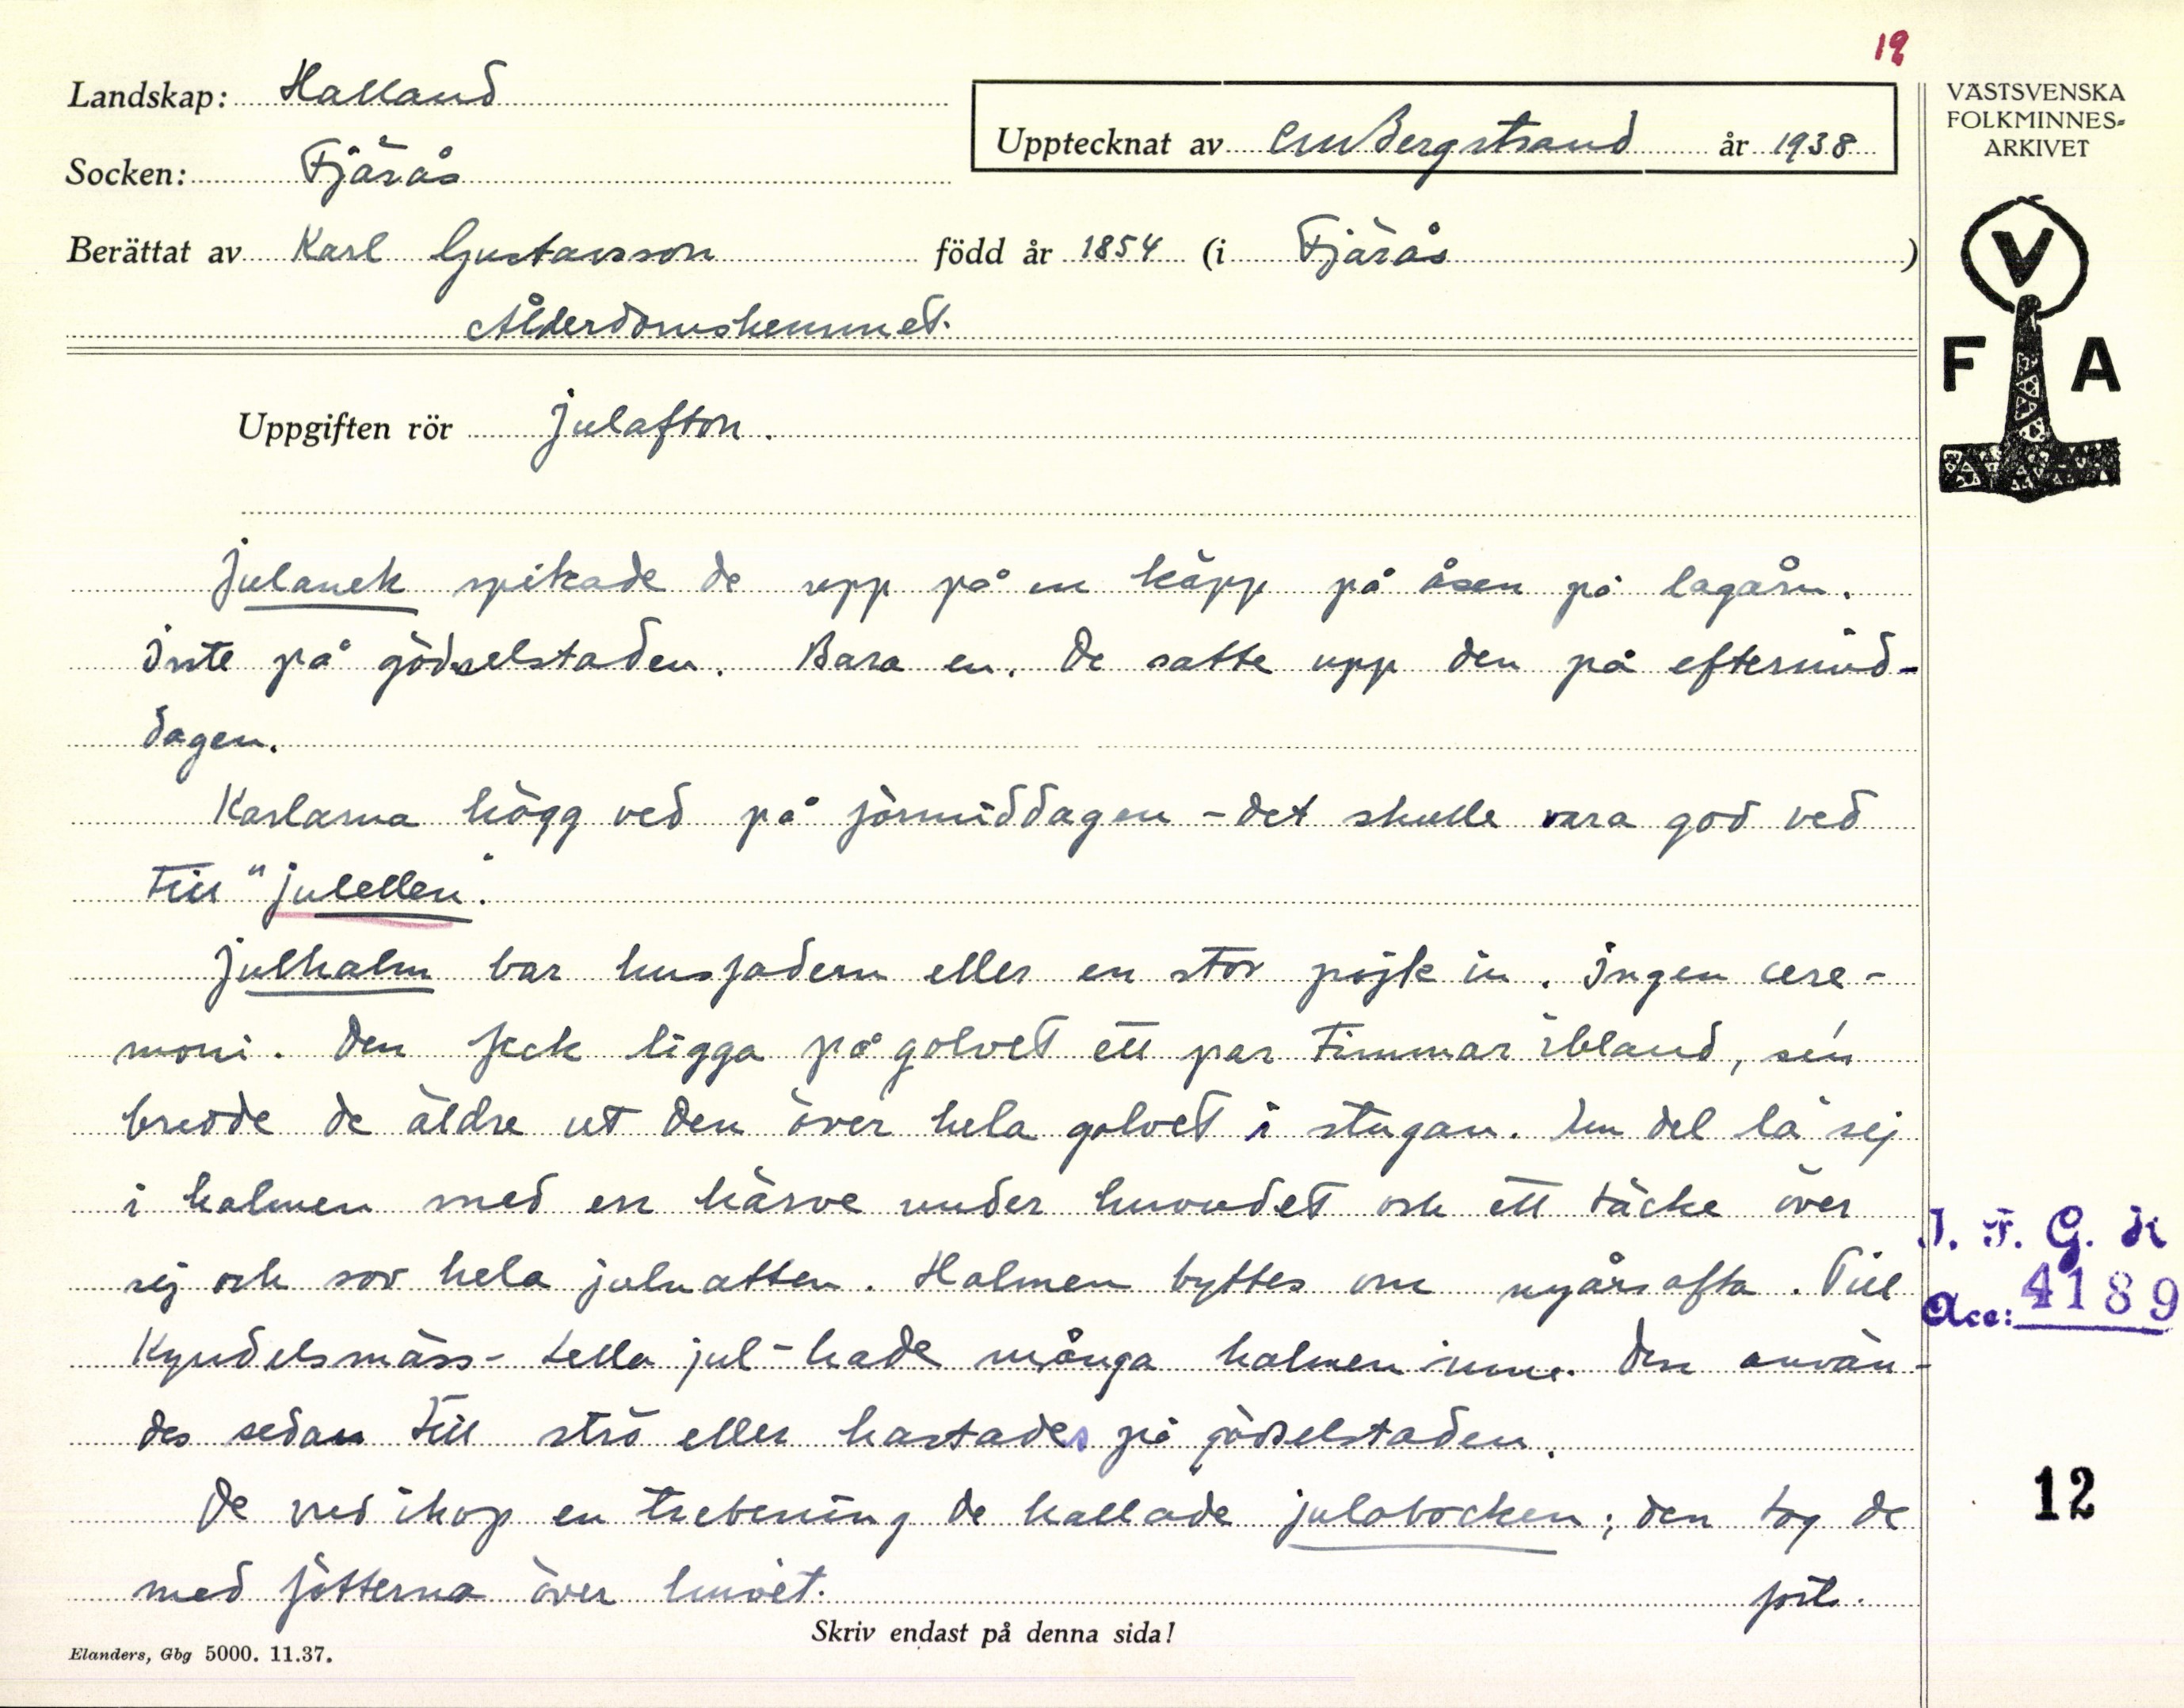 12
Landskap: Halland
Upptecknat av CMBergstrand år 1938
VÄSTSVENSKA
FOLKMINNES-
ARKIVET
Socken: Fjärås
Berättat av Karl Gustavsson född år 1854 (i Fjärås)
Ålderdomshemmet.
V
F A
Uppgiften rör Julafton.
Julanek spikade de upp på en käpp på åsen på lagårn.
Inte på gödselstaden. Bara en. De satte upp den på eftermid-
dagen.
Karlarna högg ved på förmiddagen - det skulle vara god ved
till "julellen".
Julhalm bar husfadern eller en stor pojk in. Ingen cere-
moni. Den feck ligga på golvet ett par timmar ibland, sén
bredde de äldre ut den över hela golvet i stugan. En del la sej
i halmen med en kärve under huvudet och ett täcke över
sej och sov hela julnatten. Halmen byttes om nyårsafta. Till
Kyndelsmäss- tella jul - hade många halmen inne. Den använ-
des sedan till strö eller kastades på gödselstaden.
De vred ihop en trebening de kallade julabocken; den tog de
med fötterna över huvet.
forts.
I. F. G. H
Acc: 4189
12
Skriv endast på denna sida!
Elanders, Gbg 5000. 11.37.